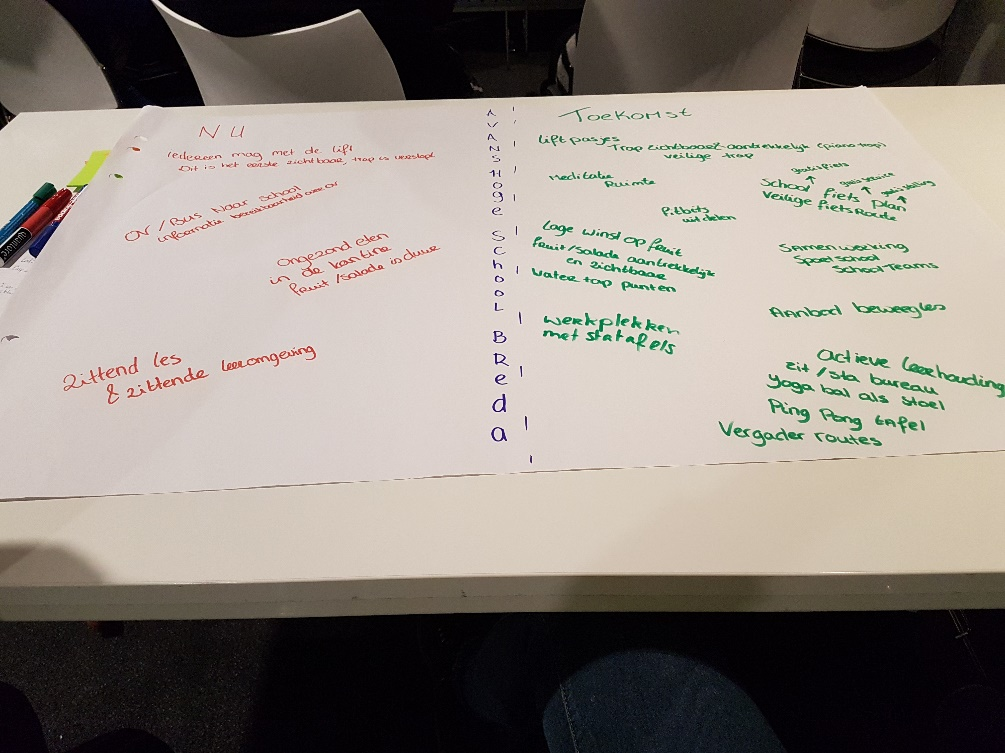 NU
Iedereen mag met de lift
Dit is het eerste zichtbaar, trap is verstopt
OV / Bus Naar School
informatie bereikbaarheid over OV
Ongezond eten
in de kantine
fruit / Salade is duur
Zittend les
& zittende leeromgeving
AVANS Hoge School BReda
Toekomst
Lift pasjes
Trap zichtbaar & aantrekkelijk (piano trap)
veilige trap
Meditatie
Ruimte
Fitbits
uitdelen
gratis fiets
gratis service
gratis stalling
School fiets plan
Veilige fiets Route
Lage winst op fruit
fruit / salade aantrekkelijk
en zichtbaar
Water tap punten
Samenwerking
Sport school
School Teams
werkplekken
met statafels
Aanbod beweegles
Actieve leerhouding
zit / sta bureau
yoga bal als stoel
Ping Pong tafel
Vergader routes